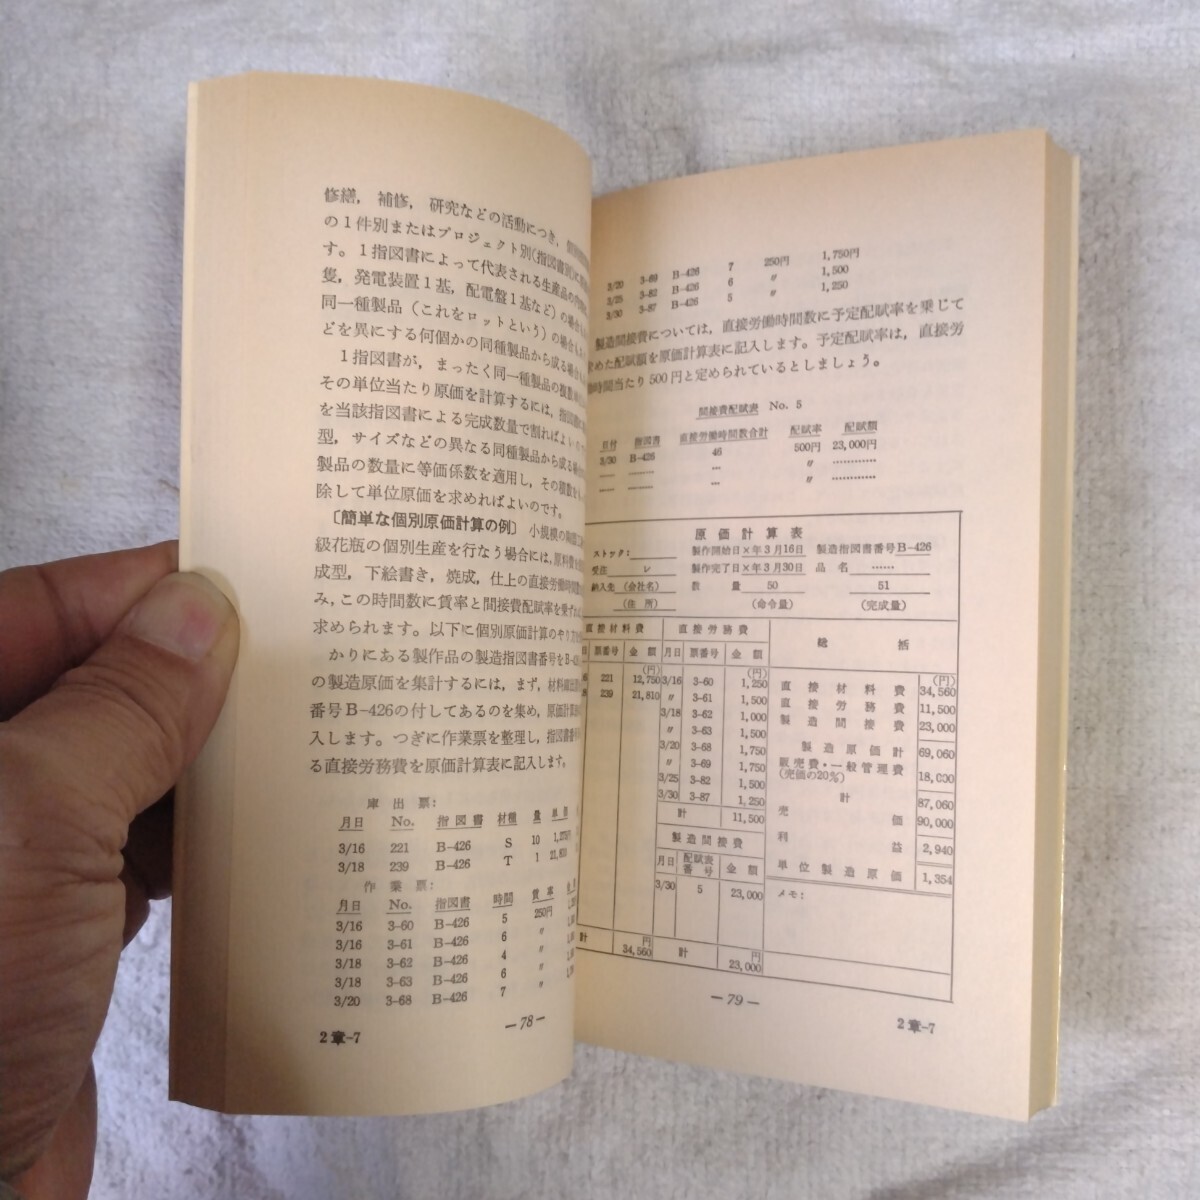 修繕，補修，研究などの活動につき，個別
の1件別またはプロジェクト別(指図書別)に
す。1指図書によって代表される生産品の
隻，発電装置1基，配電盤1基など）の場合
同一種製品（これをロットという）の場合
どを異にする何個かの同種製品から成る場合
1指図書が，まったく同一種製品の複数
その単位当たり原価を計算するには，指図書
を当該指図書による完成数量で割ればよいの
型，サイズなどの異なる同種製品から成る場合
製品の数量に等価係数を適用し，その積数
除して単位原価を求めればよいのです。
〔簡単な個別原価計算の例〕 小規模の
級花瓶の個別生産を行なう場合には，原料費を
成型，下絵書き，焼成，仕上の直接労働時間
み，この時間数に賃率と間接費配賦率を乗ずれば
求められます。以下に個別原価計算のやり方を
かりにある製作品の製造指図書番号をB-426
の製造原価を集計するには，まず，材料
番号B-426の付してあるのを集め，原価計算
入します。つぎに作業票を整理し，指図書番号
る直接労務費を原価計算表に記入します。
庫出票：
月日 No. 指図書 材種 量 単価
3/16 221 B-426 S 10 1,275円
3/18 239 B-426 T 1 21,810
作業票：
月日 No. 指図書 時間 賃率
3/16 3-60 B-426 5 250円
3/16 3-61 B-426 6 〃
3/18 3-62 B-426 4 〃
3/18 3-63 B-426 6 〃
3/20 3-68 B-426 7 〃
―78―
2章-7
3/20 3-69 B-426 7 250円 1,750円
3/25 3-82 B-426 6 〃 1,500
3/30 3-87 B-426 5 〃 1,250
製造間接費については，直接労働時間数に予定配賦率を乗じて
求めた配賦額を原価計算表に記入します。予定配賦率は，直接労
働時間当たり500円と定められているとしましょう。
間接費配賦表 No. 5
日付 指図書 直接労働時間数合計 配賦率 配賦額
3/30 B-426 46 500円 23,000円
…… …… … 〃 …………
…… …… … 〃 …………
原価計算表
ストック: 製作開始日×年3月16日 製造指図書番号B-426
受注 レ 製作完了日×年3月30日 品名 ……
納入先（会社名） 数量 50 51
（住所） （命令量） （完成量）
直接材料費 直接労務費 総括
日 票番号 金額 月日 票番号 金額
(円) (円) (円)
221 12,750 3/16 3-60 1,250
239 21,810 〃 3-61 1,500
3/18 3-62 1,000
〃 3-63 1,500
3/20 3-68 1,750
〃 3-69 1,750
3/25 3-82 1,500
3/30 3-87 1,250
計 11,500
直接材料費 34,560
直接労務費 11,500
製造間接費 23,000
製造原価計 69,060
販売費・一般管理費 18,000
(売価の20%)
計 87,060
売価 90,000
利益 2,940
単位製造原価 1,354
メモ：
製造間接費
月日 配賦表番号 金額
3/30 5 23,000
計 34,560円 計 23,000円
―79―
2章-7